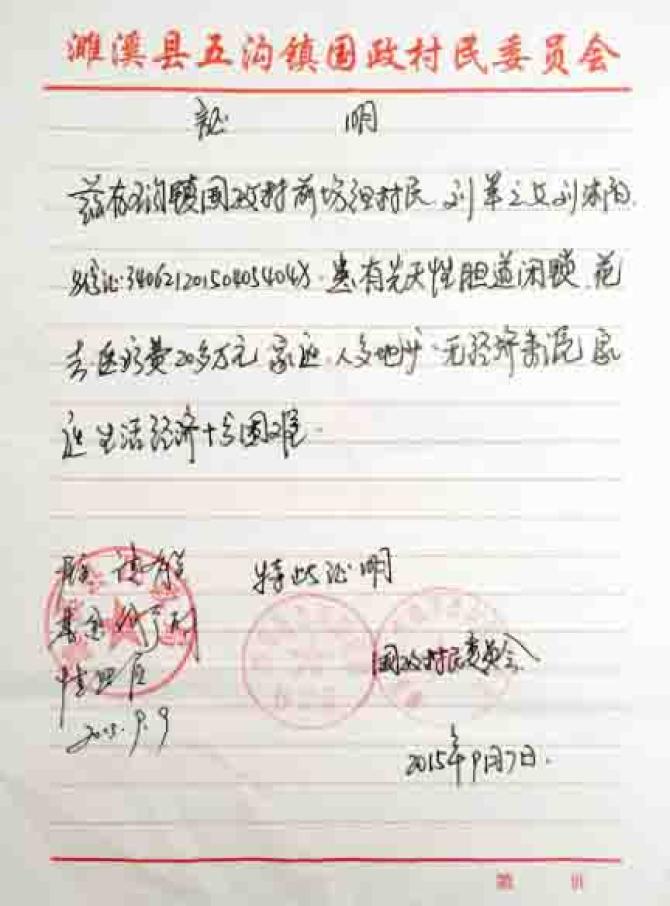 濉溪县五沟镇国政村民委员会
证 明
兹有五沟镇国政村前坊组村民 刘军之女刘沐雨.
身份证:34062120150405404X.患有先天性胆道闭锁.花
去医疗费20多万元 家庭.人多地少.无经济来源 家
庭生活经济十分困难.
特此证明
国政村民委员会
2015年9月7日.
请有关
基金会予以
2015.9.9
第 页